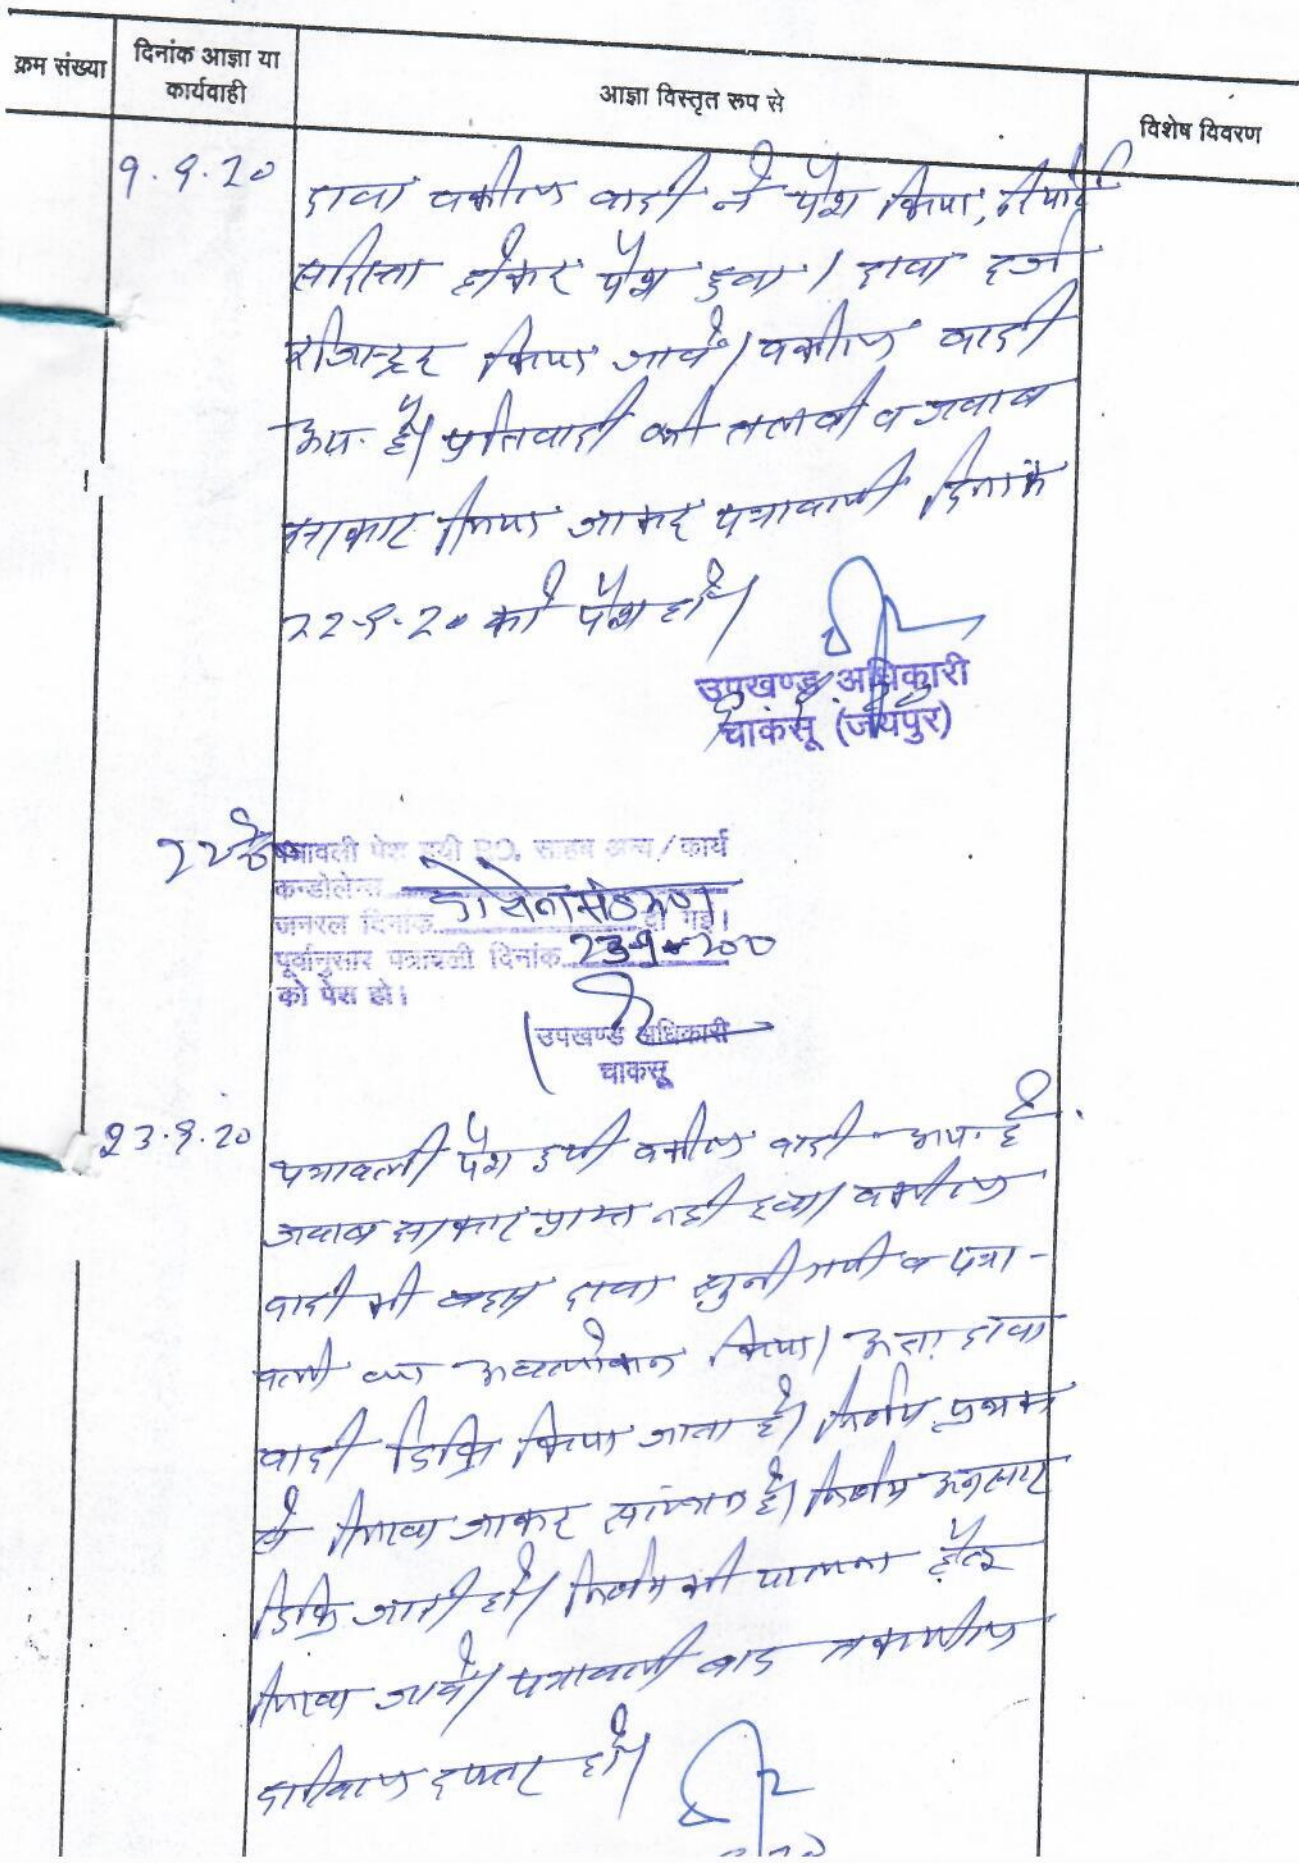 क्रम संख्या
दिनांक आज्ञा या
कार्यवाही
आज्ञा विस्तृत रूप से
विशेष विवरण
9.9.20
दावा वकील वादी ने पेश किया, रिपोर्ट
सरिस्ता होकर पेश हुवा। दावा दर्ज
रजिस्टर किया जावे। वकील वादी
उप. है। प्रतिवादी को तलबी व जवाब
सरकार लिया जाकर पत्रावली दिनांक
22-9-20 को पेश हो।
उपखण्ड अधिकारी
चाकसू (जयपुर)
पत्रावली पेश हुयी P.O. साहब अन्य / कार्य
कन्डोलेन्स
जनरल दिनांक दी गई।
पूर्वानुसार पत्रावली दिनांक 23-9-2020
को पेश हो।
उपखण्ड अधिकारी
चाकसू
23.9.20
पत्रावली पेश हुयी वकील वादी उप. है
जवाब सरकार प्राप्त नही हुवा। वकील
वादी की बहस दावा सुनी गयी व पत्रा-
वली का अवलोकन किया। अतः दावा
वादी डिक्रि किया जाता है। निर्णय पृथक
से लिखा जाकर संलग्न है। निर्णय अनुसार
डिक्रि जारी हो। निर्णय की पालना हेतु
लिखा जावे। पत्रावली बाद तकमील
दाखिल दफ्तर हो।